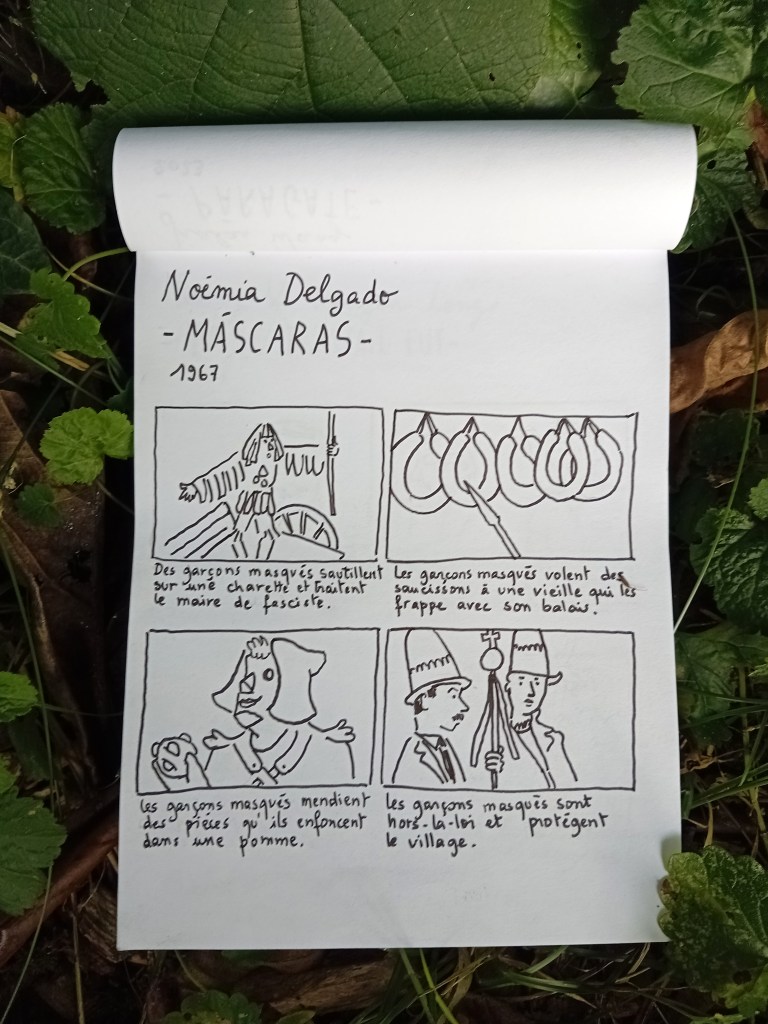 Noémia Delgado
- MÁSCARAS -
1967
Des garçons masqués sautillent
sur une charette et traitent
le maire de fasciste.
Les garçons masqués volent des
saucissons à une vieille qui les
frappe avec son balais.
Les garçons masqués mendient
des pièces qu'ils enfoncent
dans une pomme.
Les garçons masqués sont
hors-la-loi et protégent
le village.